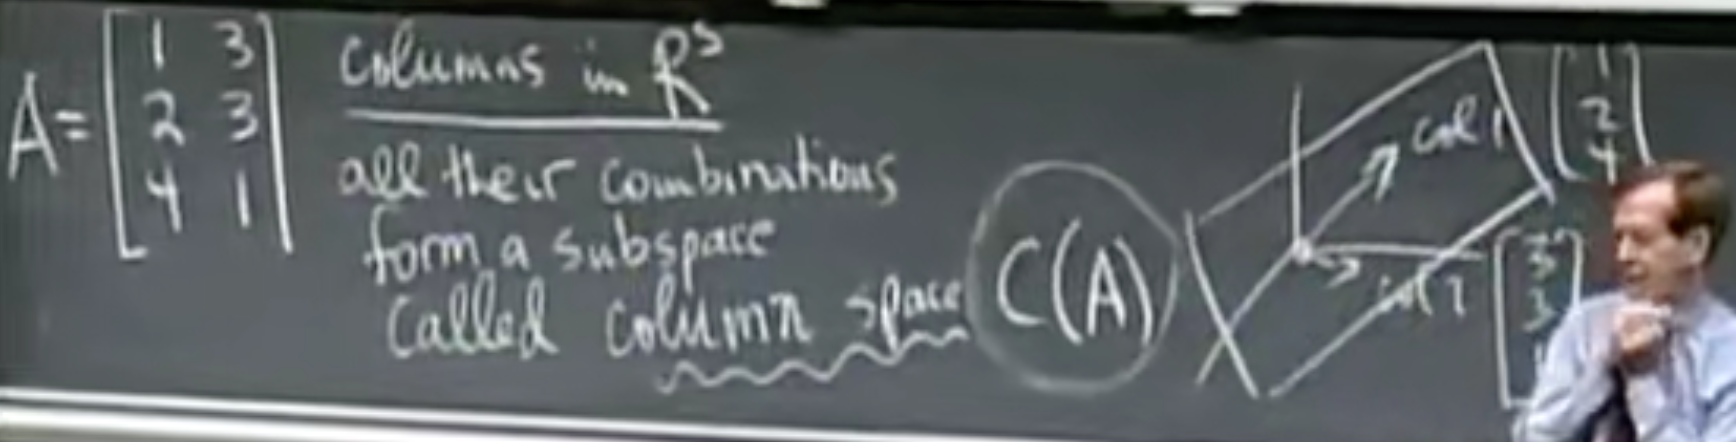 A = [1 3
2 3
4 1]
columns in R³
all their combinations
form a subspace
called column space
C(A)
col 1
[1
2
4]
col 2
[3
3